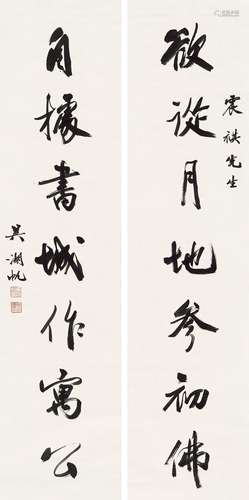 震祺先生
欲從月地參初佛
自據書城作寓公
吳湖帆